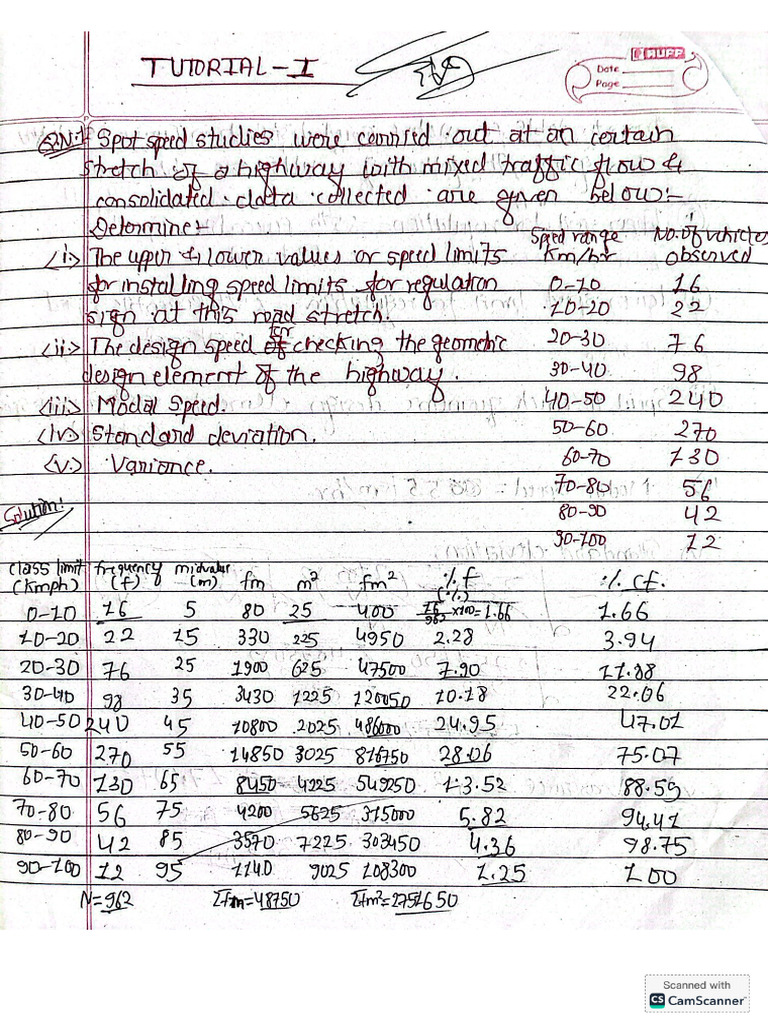 TUTORIAL-I
HUFF
Date
Page
Q.N:1 Spot speed studies were carried out at an certain
stretch of a highway with mixed traffic flow &
consolidated data collected are given below:-
Determine:-
Speed range Km/hr No. of vehicles observed
<i> The upper & lower values or speed limits
for installing speed limits for regulation
sign at this road stretch.
<ii> The design speed for checking the geometric
design element of the highway.
<iii> Modal Speed.
<iv> Standard deviation.
<v.> Variance.
0-10 16
10-20 22
20-30 76
30-40 98
40-50 240
50-60 270
60-70 130
70-80 56
80-90 42
90-100 12
Solution:
class limit (Kmph) frequency (f) midvalue (m) fm m² fm² %f (%) % cf.
0-10 16 5 80 25 400 16/962 ×100=1.66 1.66
10-20 22 15 330 225 4950 2.28 3.94
20-30 76 25 1900 625 47500 7.90 11.88
30-40 98 35 3430 1225 120050 10.18 22.06
40-50 240 45 10800 2025 486000 24.95 47.01
50-60 270 55 14850 3025 816750 28.06 75.07
60-70 130 65 8450 4225 549250 13.52 88.59
70-80 56 75 4200 5625 315000 5.82 94.41
80-90 42 85 3570 7225 303450 4.36 98.75
90-100 12 95 1140 9025 108300 1.25 100
N=962 Σfm=48750 Σfm²=2751650
Scanned with
CS CamScanner